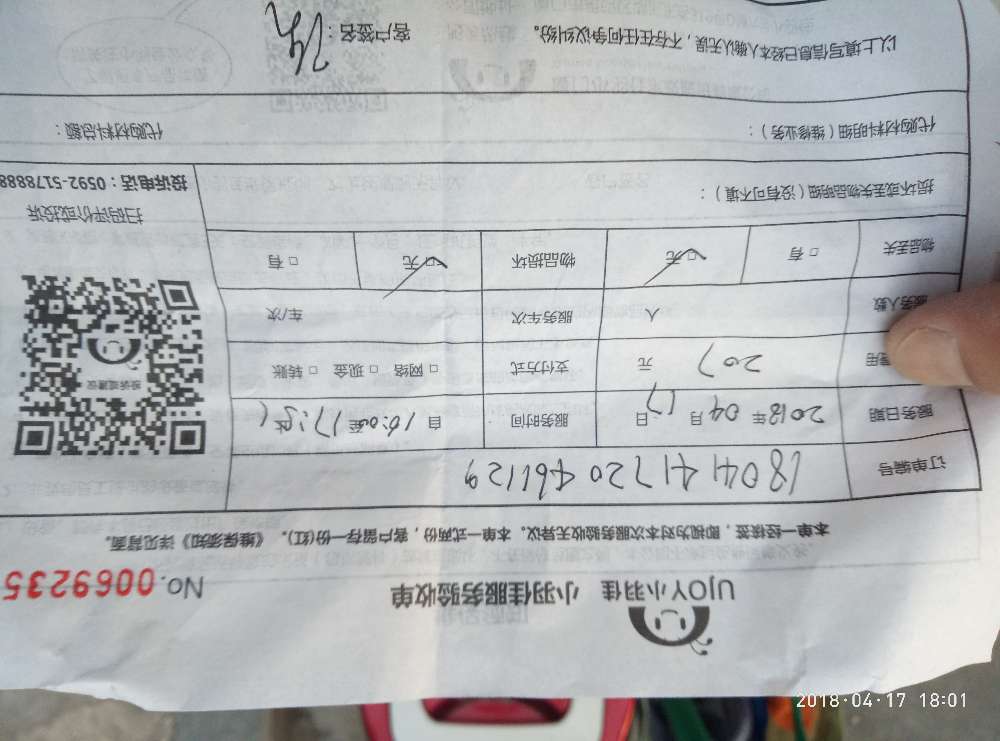 UJOY小羽佳 小羽佳服务验收单
No.0069235
本单一经核签,即视为对本次服务验收无异议。本单一式两份,客户留存一份(红)。《维保须知》详见背面。
订单编号
服务日期 2018年 04月 17日 服务时间 自16:00至17:
费用 207 元 支付方式 □ 网络 □ 现金 □ 转账
服务人数 人 服务车次 车/次
物品丢失 □ 有 □ 无 物品损坏 □ 无 □ 有
投诉或建议
扫码评价或投诉
投诉电话:0592-5178888
损坏或丢失物品明细(没有可不填):
代购材料明细(维修业务): 代购材料总额:
以上填写信息已经本人确认无误,不存在任何争议纠纷。 客户签名:
2018-04-17 18:01